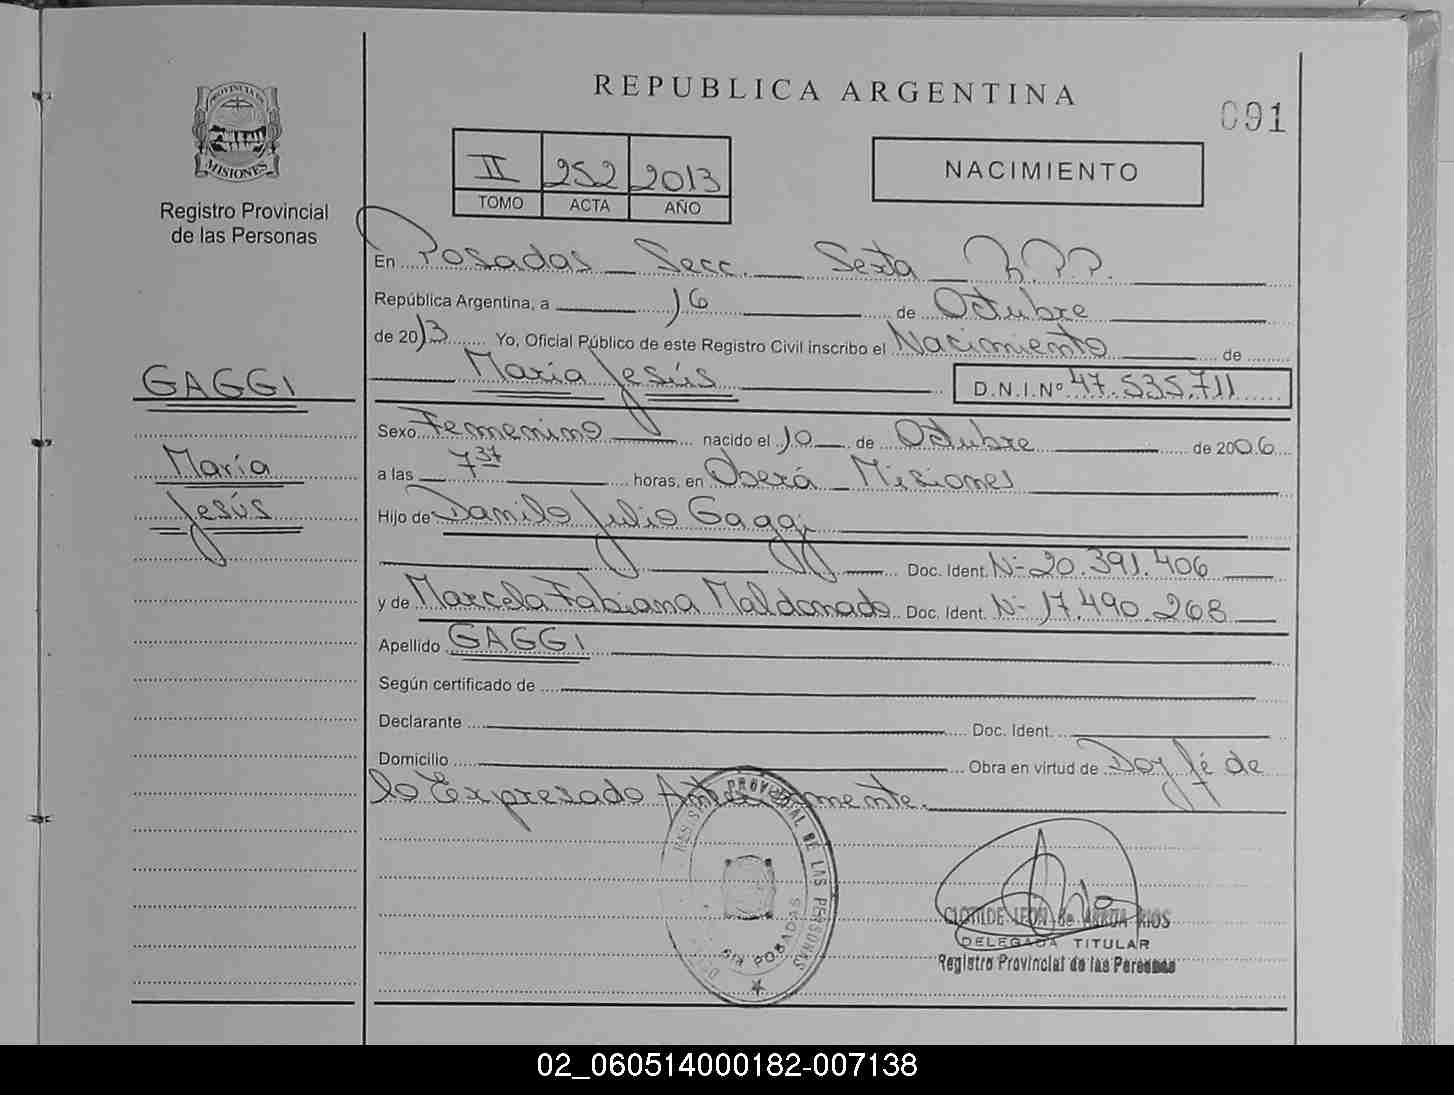 REPUBLICA ARGENTINA
091
PROVINCIA DE
MISIONES
Registro Provincial
de las Personas
II 252 2013
TOMO ACTA AÑO
NACIMIENTO
En Posadas Secc. Sexta R.P.P.
República Argentina, a 16 de Octubre
de 2013 Yo, Oficial Público de este Registro Civil inscribo el Nacimiento de
María Jesús D.N.I.Nº 47.535.711
GAGGI
María
Jesús
Sexo Femenino nacido el 10 de Octubre de 2006
a las 7 37 horas, en Oberá Misiones
Hijo de Danilo Julio Gaggi
Doc. Ident. Nº 20.391.406
y de Marcela Fabiana Maldonado Doc. Ident. Nº 17.490.268
Apellido GAGGI
Según certificado de
Declarante Doc. Ident.
Domicilio Obra en virtud de Doy fé de
lo Expresado Anteriormente.
PROVINCIAL DE LAS PERSONAS
POSADAS
CLOTILDE LEON de ARRUA RIOS
DELEGADA TITULAR
Registro Provincial de las Personas
02_060514000182-007138